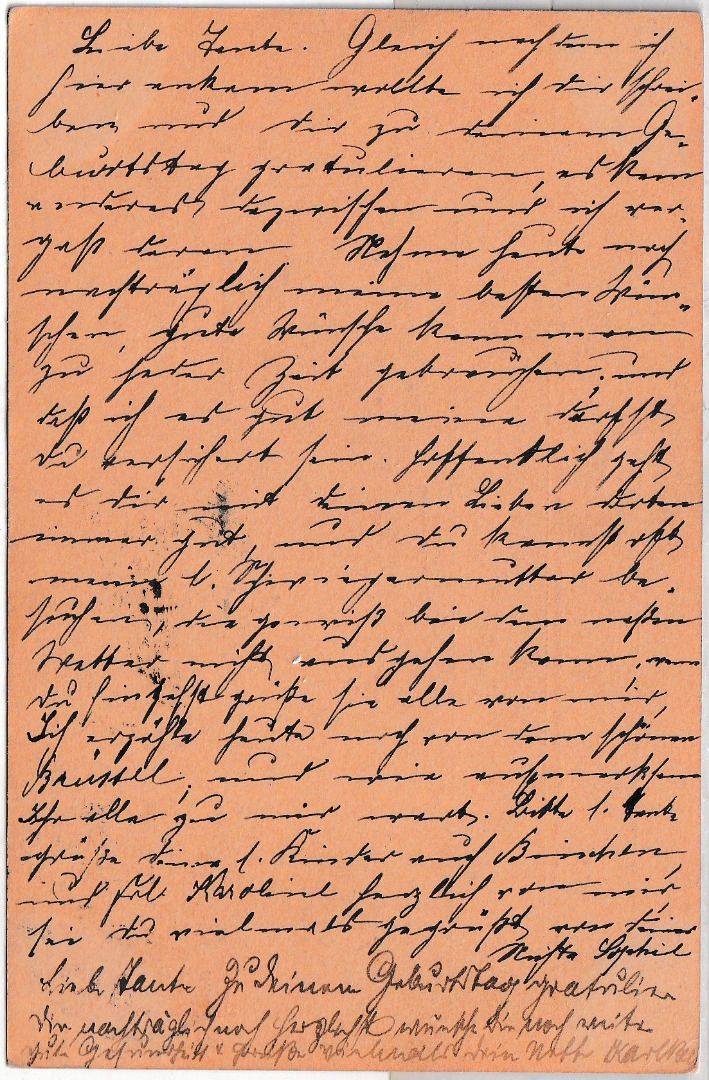 Liebe Tante. Gleich nachdem ich
hier ankam wollte ich dir schrei-
ben und dir zu deinem Ge-
burtstag gratulieren, es kam
anderes dazwischen und ich ver-
gaß daran Nehme heute noch
nachträglich meine besten Wün-
schen, gute Wünsche kann man
zu jeder Zeit gebrauchen, und
daß ich es gut meine darfst
du versichert sein. Hoffentlich geht
es dir mit deinen Lieben dorten
immer gut, und du kannst oft
meine l. Schwiegermutter be-
suchen, die gewiß bei dem naßen
Wetter nicht ausgehen kann, wenn
du hingehst grüße sie alle von mir,
Ich erzähle heute noch von dem schönen
Brüssel, und wie aufmerksam
Ihr alle zu mir wart. Bitte l. Tante
grüße deine l. Kinder auch Binchen,
und Frl. Karoline herzlich von mir,
sei du vielmals gegrüßt von deiner
Nichte Sophie
Liebe Tante Zu deinem Geburtstag gratulier
Dir nachträglich noch herzlichst wünsche Dir noch weite
gute Gesundheit & Grüße vielmals dein Neff Karl